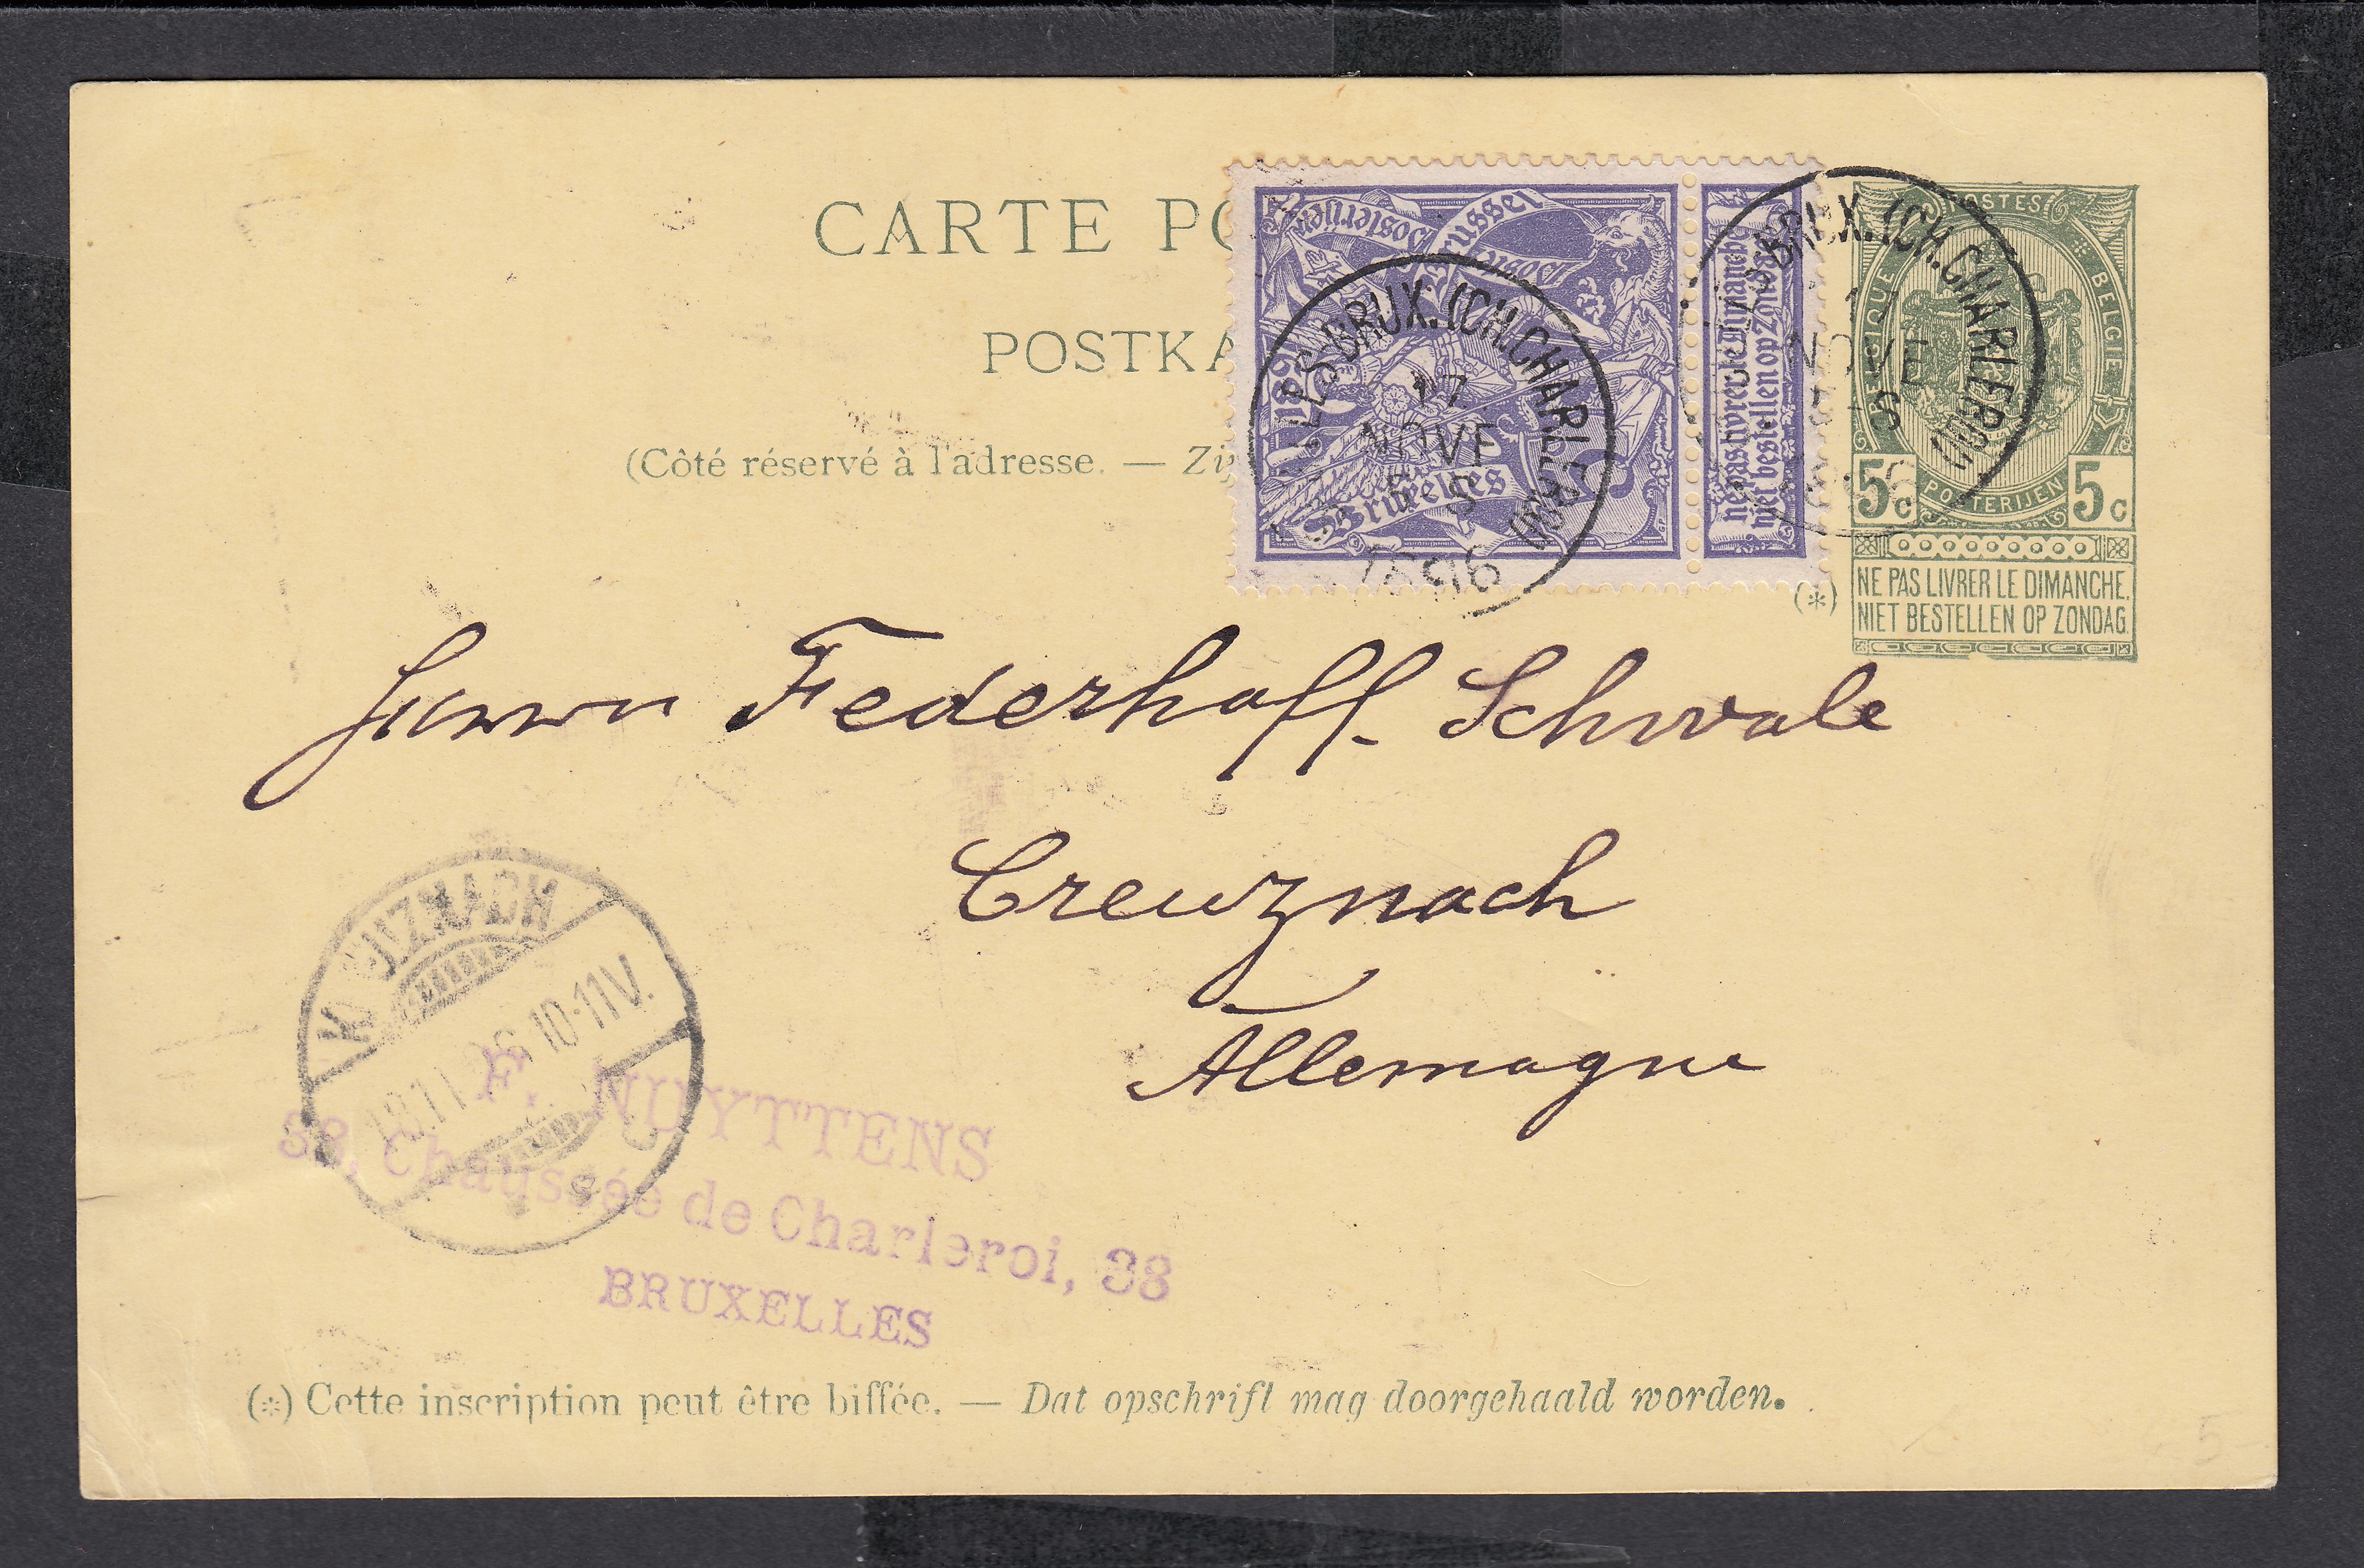 CARTE PO
POSTKA
(Côté réservé à l'adresse. — Zij
Postes Bruxelles 1897
Brussel
Posterijen
Bruxelles
ne pas livrer le Dimanche
niet bestellen op Zondag
LES-BRUX. (CH. CHARLEROI)
17
NOVE
8-S
1896
BRUX. (CH. CHARLEROI)
17
NOVE
8-S
1896
POSTES
BELGIQUE
BELGIE
POSTERIJEN
5c 5c
(*) NE PAS LIVRER LE DIMANCHE.
NIET BESTELLEN OP ZONDAG.
Herrn Federhaff. Schwale
Creuznach
Allemagne
KREUZNACH
18.11.96 10-11V.
F. NUYTTENS
38, Chaussée de Charleroi, 38
BRUXELLES
(*) Cette inscription peut être biffée. — Dat opschrift mag doorgehaald worden.
5-